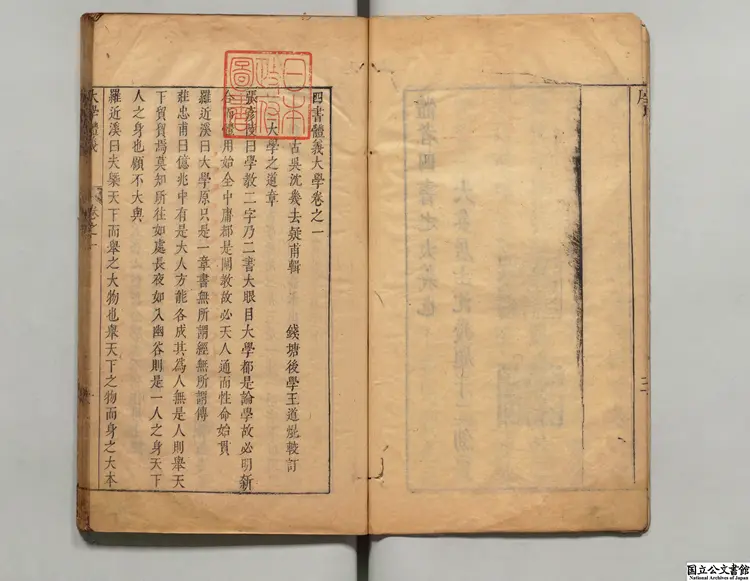 四書體義大學卷之一
古吳沈幾去疑甫輯
錢塘後學王道焜較訂
大學之道章
張彥陵曰學教二字乃二書大眼目大學都是論學故必明新
合而體用始全中庸都是闡教故必天人通而性命始貫
羅近溪曰大學原只是一章書無所謂經無所謂傳
莊忠甫曰億兆中有是大人方能各成其爲人無是人則舉天
下貿貿焉莫知所往如處長夜如入幽谷則是一人之身天下
人之身也願不大與
羅近溪曰夫槩天下而舉之大物也舉天下之物而身之大本
大學體義
卷之一
日本
政府
圖書
序
三
國立公文書館
National Archives of Japan